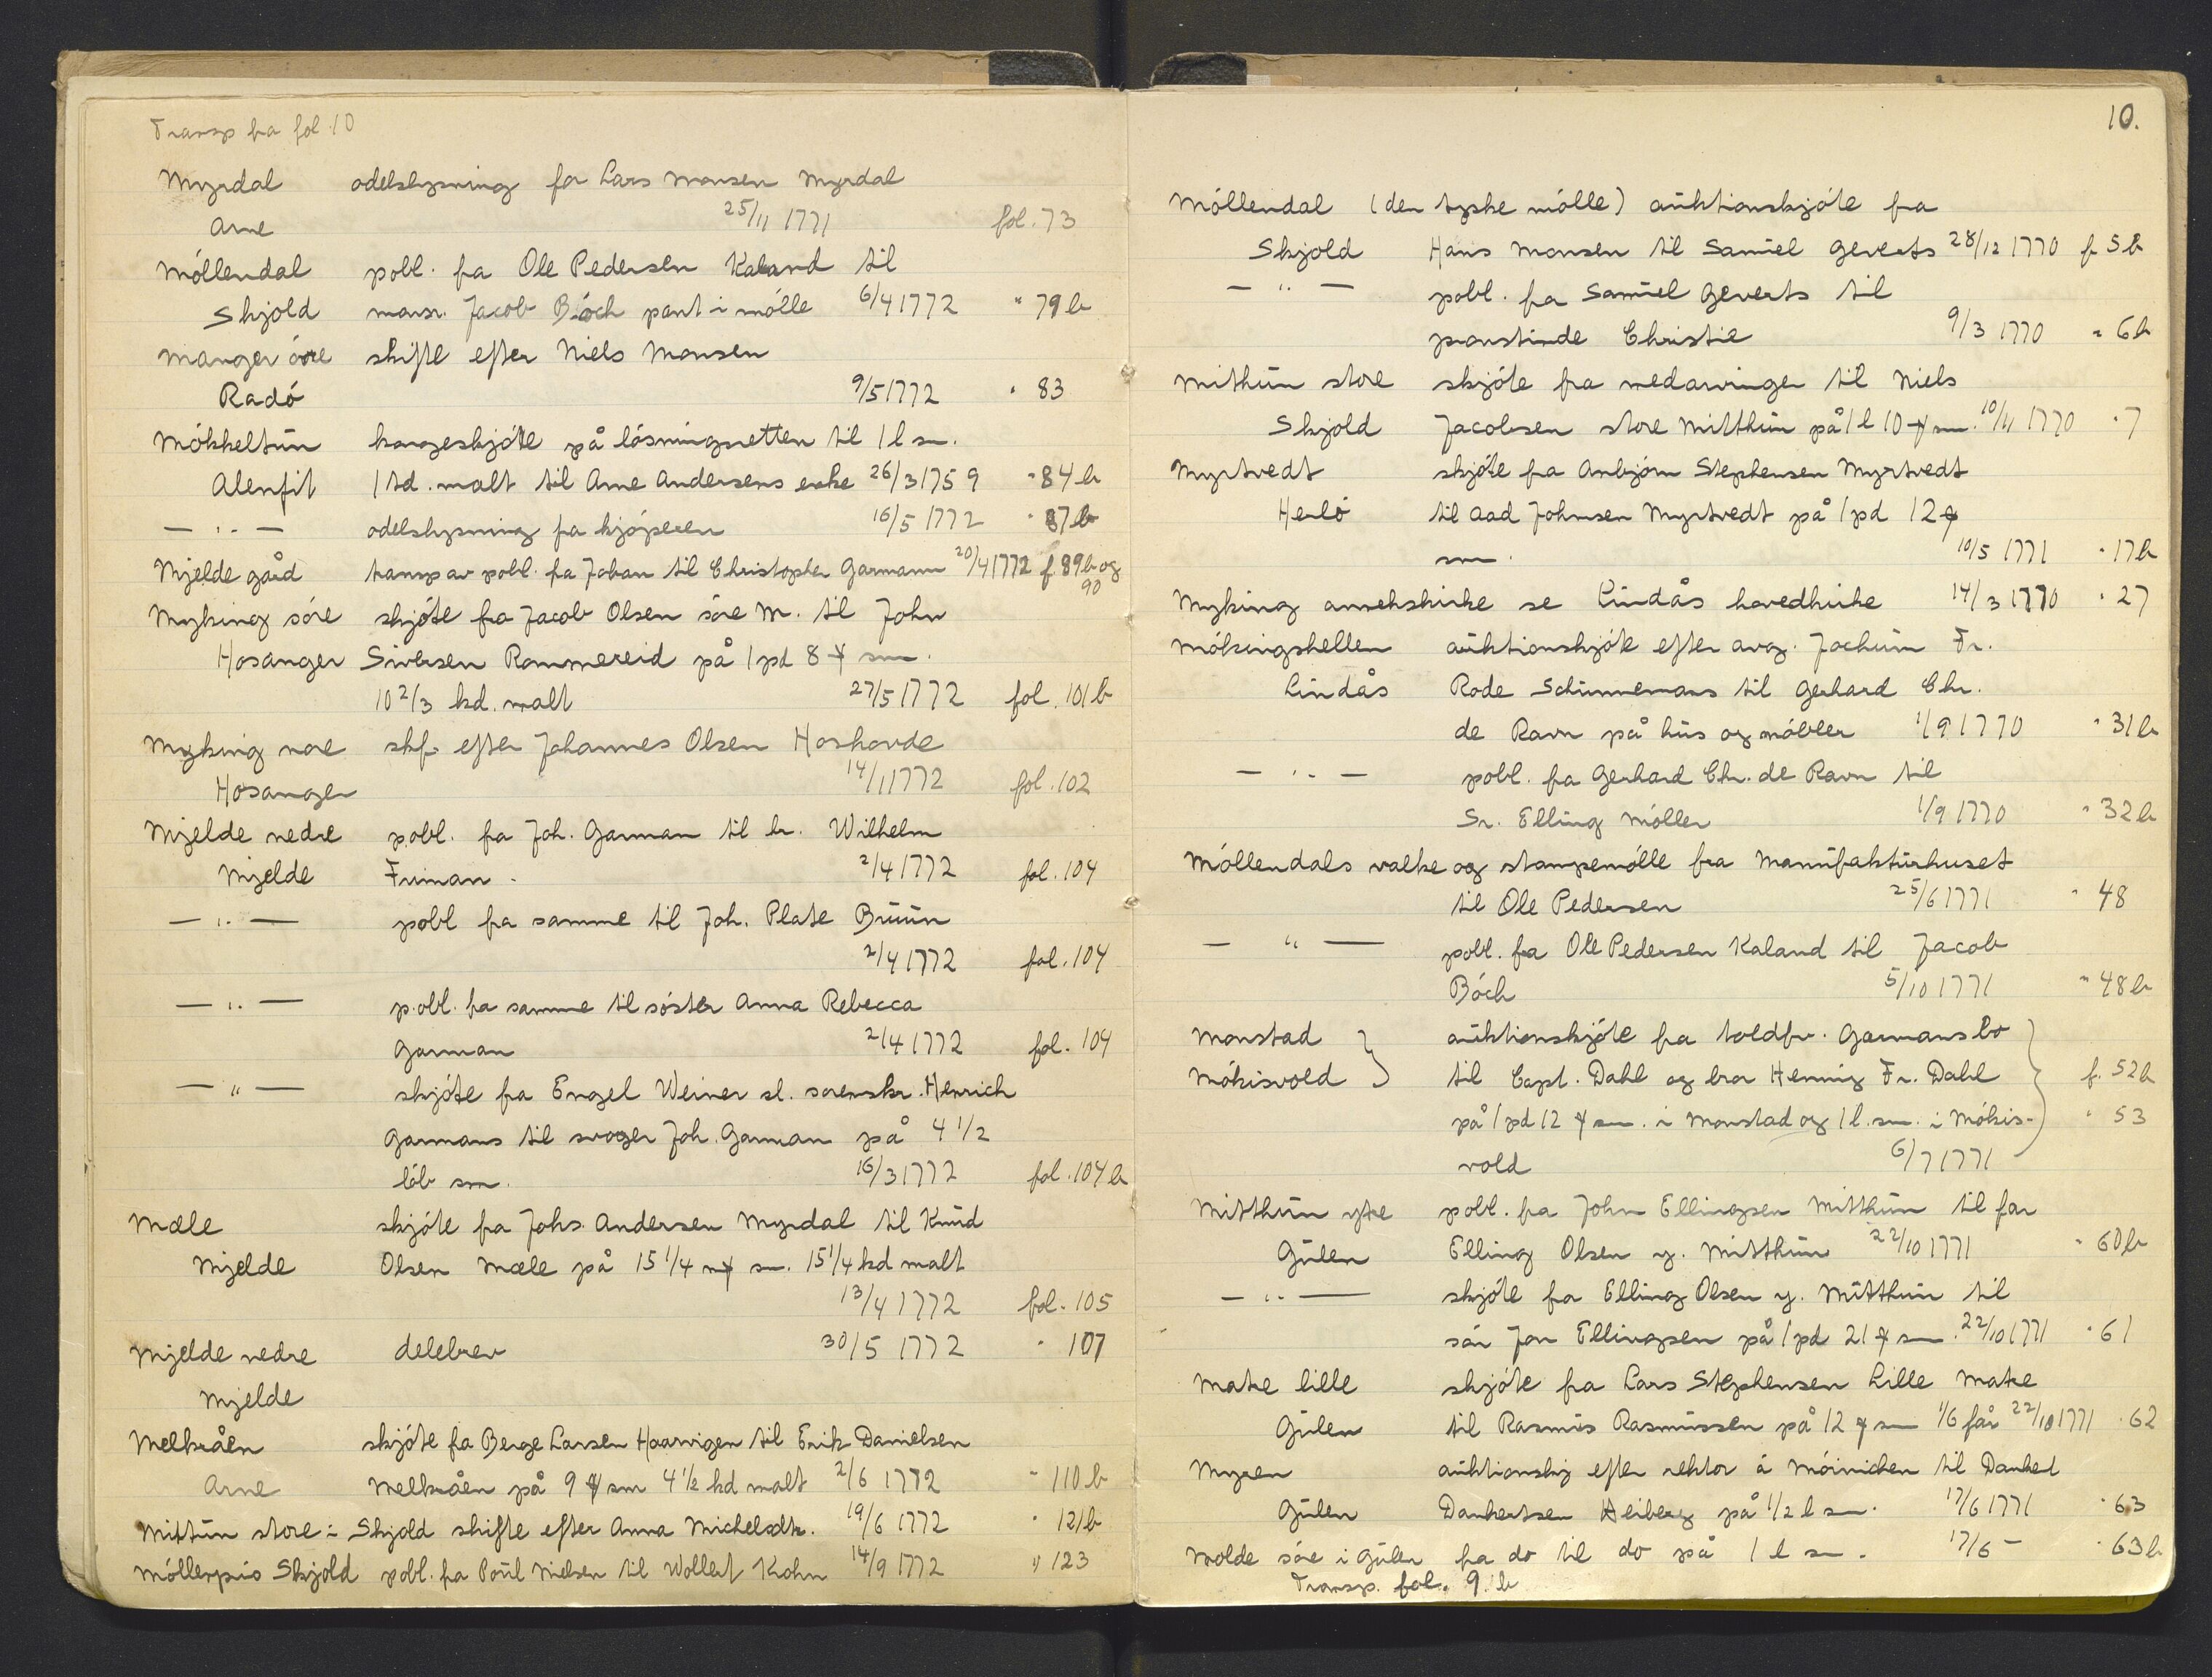 Transp fra fol 10
Myrdal odelslysning for Lars Monsen Myrdal
Arne 25/11 1771 fol. 73
Móllendal pobl. fra Ole Pedersen Kaland til
Skjold monsr. Jacob Bóch pant i mólle 6/4 1772 " 79 b
Manger óvre skifte efter Niels Monsen
Radó 9/5 1772 " 83
Mókkeltun kongeskjóte på lósningsretten til 1 l sm.
Alenfit 1 td. malt til Arne Andersens enke 26/3 1759 " 84 b
— " — odelslysning fra kjóperen 16/5 1772 " 87 b
Mjelde gård transp av pobl. fra Johan til Christopher Garmann 20/4 1772 f. 89 b og
90
Myking sóre skjóte fra Jacob Olsen sóre M. til John
Hosanger Sivertsen Rommereid på 1 pd 8 ʉ sm.
10 2/3 kd. malt 27/5 1772 fol. 101 b
Myking nore skf. efter Johannes Olsen Hoshovde
Hosanger 14/11772 fol. 102
Mjelde nedre pobl. fra Joh. Garman til br. Wilhelm
Mjelde Friman. 2/4 1772 fol. 104
— " — pobl fra samme til Joh. Plate Bruun
2/4 1772 fol. 104
— " — pobl. fra samme til sóster Anna Rebecca
Garman 2/4 1772 fol. 104
— " — skjóte fra Engel Weiner sl. sorenskr. Henrich
Garmans til svoger Joh. Garman på 4 1/2
lób sm. 16/3 1772 fol. 104 b
Mæle skjóte fra Johs. Andersen Myrdal til Knud
Mjelde Olsen Mæle på 15 1/4 mʉ sm. 15 1/4 kd malt
13/4 1772 fol. 105
Mjelde nedre delebrev 30/5 1772 " 107
Mjelde
Melkråen skjóte fra Berge Larsen Haarvigen til Erik Danielsen
Arne Melkråen på 9 ʉ sm 4 1/2 kd malt 2/6 1772 " 110 b
Mittun store i Skjold skifte efter Anna Michelsdtr. 19/6 1772 " 121 b
Móllerpris Skjold pobl. fra Poul Nielsen til Wollert Krohn 14/9 1772 " 123
10.
Móllendal (den tyske mólle) auktionskjóte fra
Skjold Hans Monsen til Samuel Geverts 28/12 1770 f 5 b
— " — pobl. fra Samuel Geverts til
provstinde Christie 9/3 1770 " 6 b
Mithun store skjóte fra medarvinger til Niels
Skjold Jacobsen store Mitthun på 1 l 10 ʉ sm. 10/11 1770 " 7
Myrtvedt skjóte fra Anbjórn Stephensen Myrtvedt
Herló til Aad Johnsen Myrtvedt på 1 pd 12 ʉ
sm. 10/5 1771 " 17 b
Myking annekskirke se Lindås hovedkirke 14/3 1770 " 27
Mókingshellen auktionskjóte efter avg. Jochum Fr.
Lindås Rode Schunnemans til Gerhard Chr.
de Ravn på hus og móbler 1/9 1770 " 31 b
— " — pobl. fra Gerhard Chr. de Ravn til
Sr. Elling Móller 1/9 1770 " 32 b
Móllendals valke og stampemólle fra Manufakturhuset
til Ole Pedersen 25/6 1771 " 48
— " — pobl. fra Ole Pedersen Kaland til Jacob
Bóch 5/10 1771 " 48 b
Monstad auktionskjóte fra toldfv. Garmans bo
Mókisvold } til Capt. Dahl og bror Hennig Fr. Dahl f. 52 b
på 1 pd 12 ʉ sm. i Monstad og 1 l. sm. i Mókis- " 53
vold 6/7 1771
Mitthun ytre pobl. fra John Ellingsen Mitthun til far
Gulen Elling Olsen y. Mitthun 22/10 1771 " 60 b
— " — skjóte fra Elling Olsen y. Mitthun til
són Jon Ellingsen på 1 pd 21 ʉ sm. 22/10 1771 " 61
Make lille skjóte fra Lars Stephensen Lille Make
Gulen til Rasmus Rasmussen på 12 ʉ sm 1/6 får 22/10 1771 " 62
Myren auktionskj efter rektor á Móinichen til Dankert
Gulen Dankertsen Heiberg på 1/2 l sm. 17/6 1771 " 63
Molde sóre i Gulen fra do til do på 1 l sm. 17/6 – " 63 b
Transp. fol. 9 b